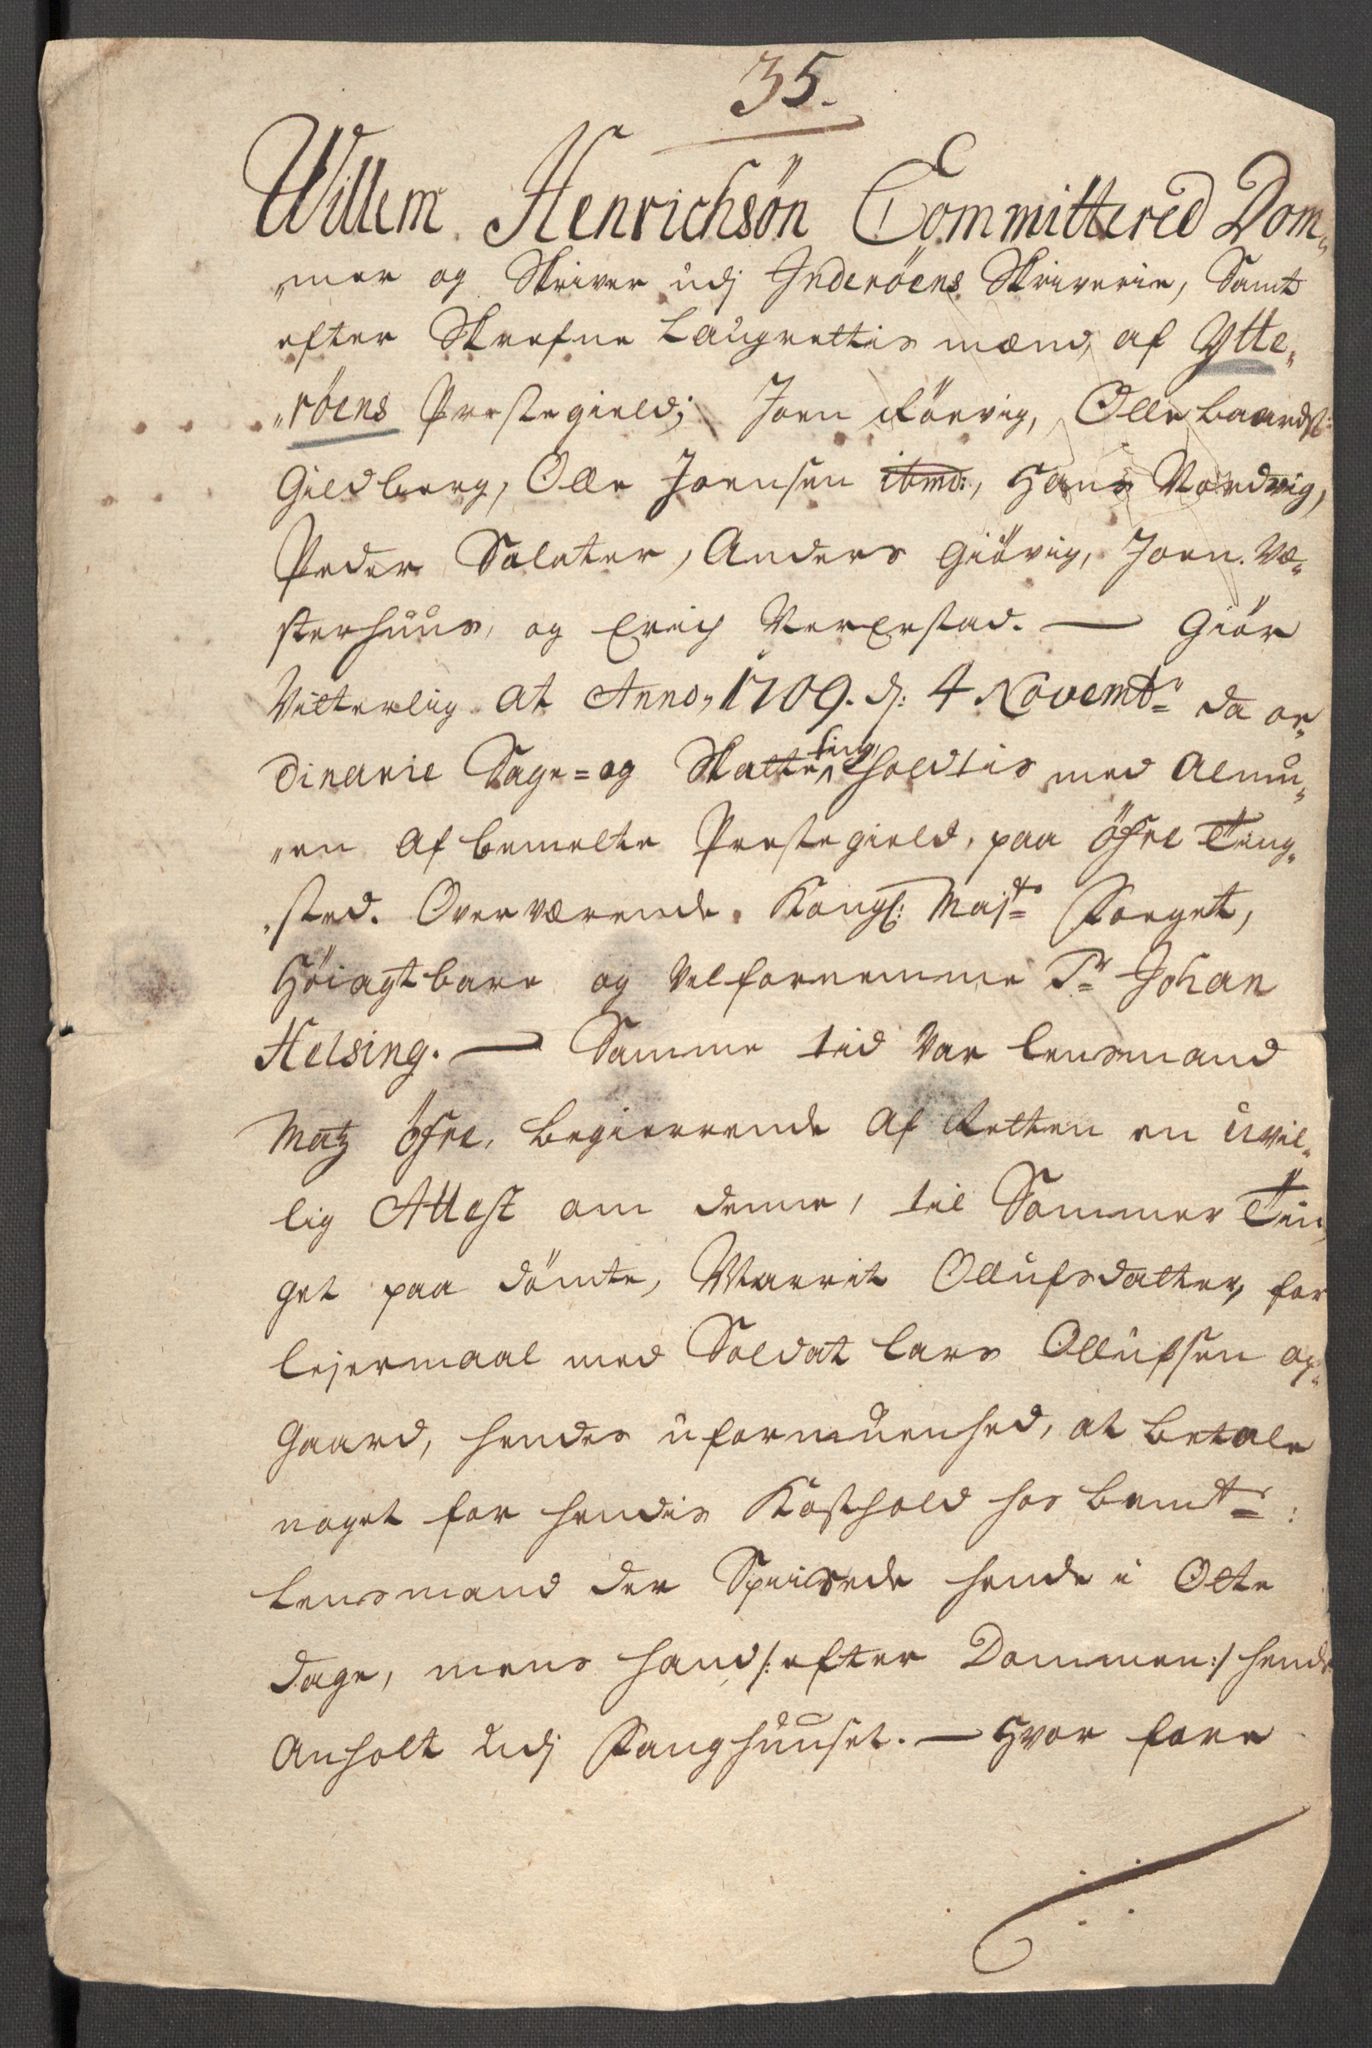 35.
Willem Henrichsön Committered Dom„
„mer og Skriver udj Inderöens Skriverie, Samt
efter Skrefne Laugrettis mænd, af Ytte„
„röens Prestegield; Joen Förvig, Olle Baardst:
Gildberg, Olle Joensen ibmd:, Hans Nordvig,
Peder Saleter, Anders Giövig, Joen Ve„
sterhuus, og Erich Verxestad. — Giör
Vitterlig at Anno, 1709. d: 4 Novembr da or„
dinarie Sage= og Skatte ting holdtis med Almu„
„en af bemelte Prestegield, paa öfre Ting„
„sted. Overværende, Kongl: Majts Foeget,
Höiagtbare og Velfornemme Sr Johan
Helsing. — Samme tid Var Lensmand
Matz öfre, begierrende af Retten en uvil„
lig Attest om denne, til Sommer Tin„
get paa dömte, Marrit Ollufsdatter, for
leiermaal med Soldat Lars Ollufsen op„
gaard, hendes uformuenhed, at betale
noget for hendis Kosthold hos bemte:
Lensmand der Spiisede hende i Otte
dage, mens hand /: efter Dommen :/ hende
Anholt udj Fanghuuset. — Hvor fore